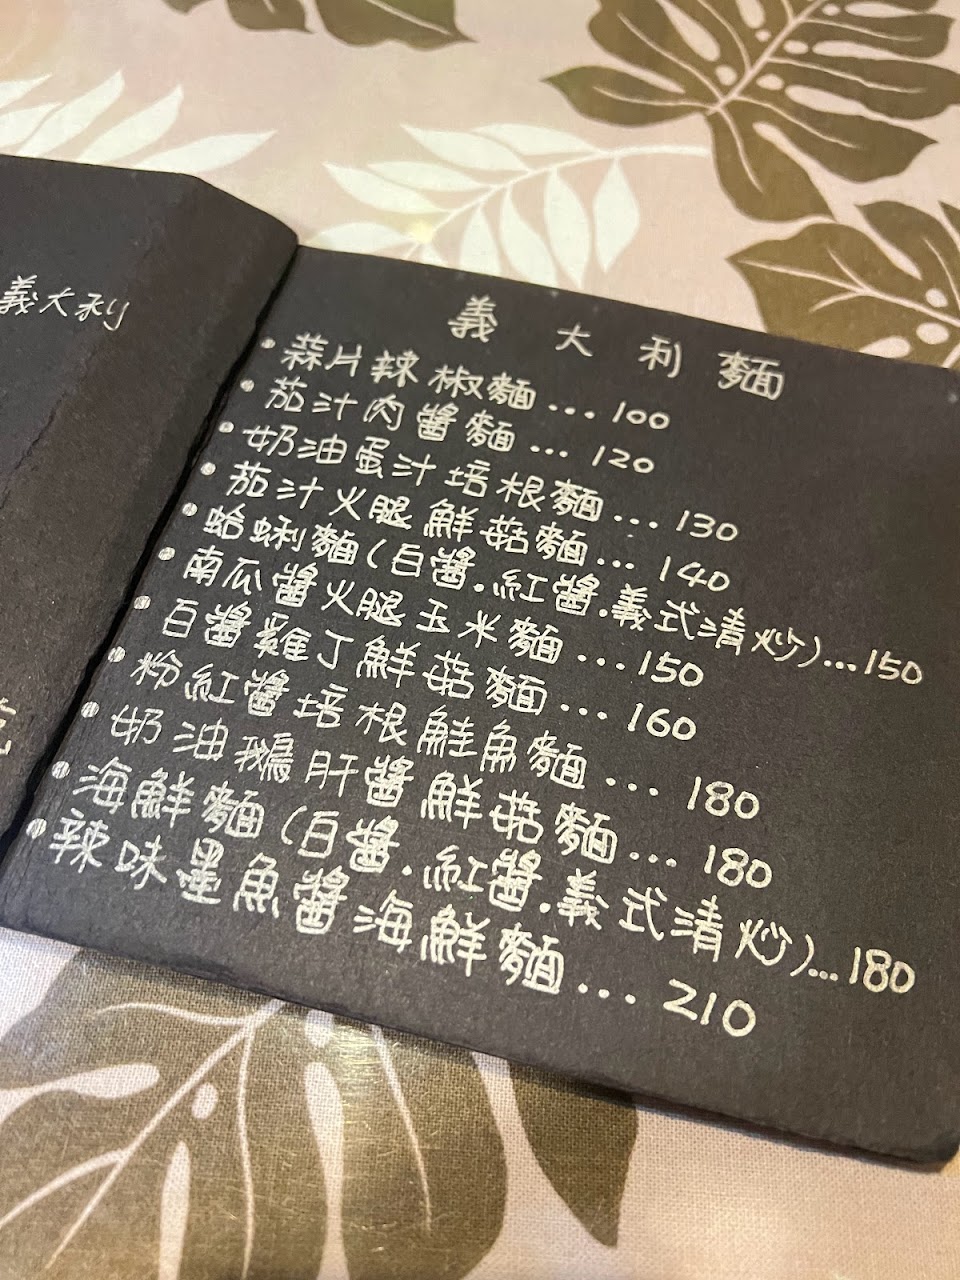 義大利
義大利麵
•蒜片辣椒麵...100
•茄汁肉醬麵...120
•奶油蛋汁培根麵...130
•茄汁火腿鮮菇麵...140
•蛤蜊麵(白醬.紅醬.義式清炒)...150
•南瓜醬火腿玉米麵...150
•白醬雞丁鮮菇麵...160
•粉紅醬培根鮭魚麵...180
•奶油鵝肝醬鮮菇麵...180
•海鮮麵(白醬.紅醬.義式清炒)...180
•辣味墨魚醬海鮮麵...210